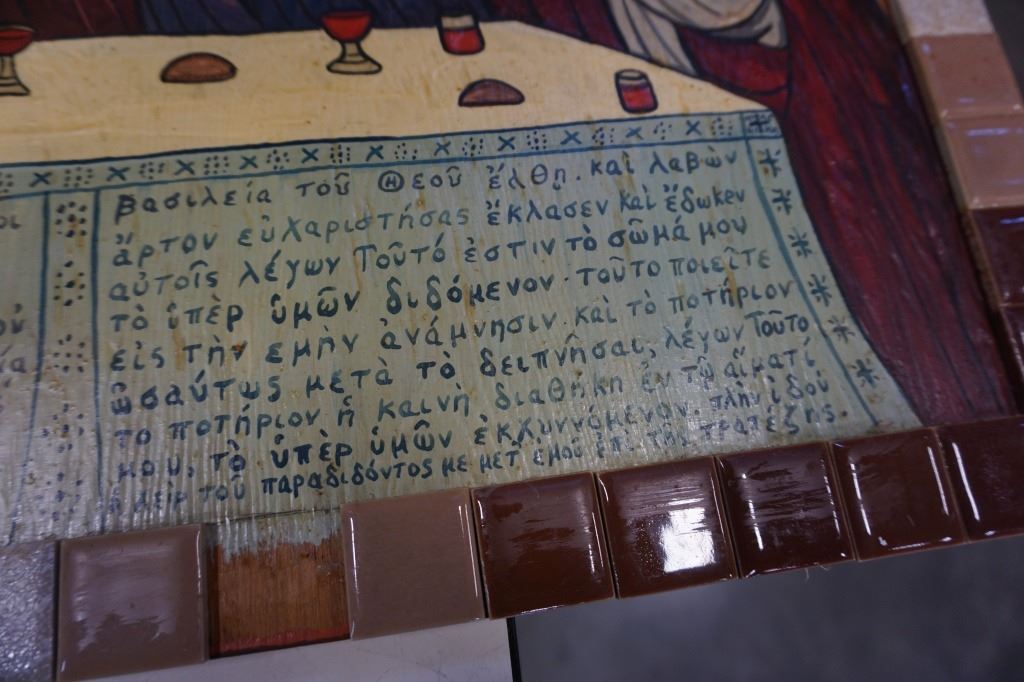 βασιλεία τοῦ Θεοῦ ἔλθῃ. καὶ λαβὼν
ἄρτον εὐχαριστήσας ἔκλασεν καὶ ἔδωκεν
αὐτοῖς λέγων Τοῦτό ἐστιν τὸ σῶμά μου
τὸ ὑπὲρ ὑμῶν διδόμενον· τοῦτο ποιεῖτε
εἰς τὴν εμὴν ἀνάμνησιν. καὶ τὸ ποτήριον
ὡσαύτως μετὰ τὸ δειπνῆσαι, λέγων Τοῦτο
το ποτήριον ἡ καινὴ διαθήκη ἐν τῷ αἵματί
μου, τὸ ὑπὲρ ὑμῶν ἐκχυννόμενον. πλὴν ἰδοὺ
χεὶρ τοῦ παραδιδόντος με μετ' ἐμοῦ ἐπὶ τῆς τραπέζης.